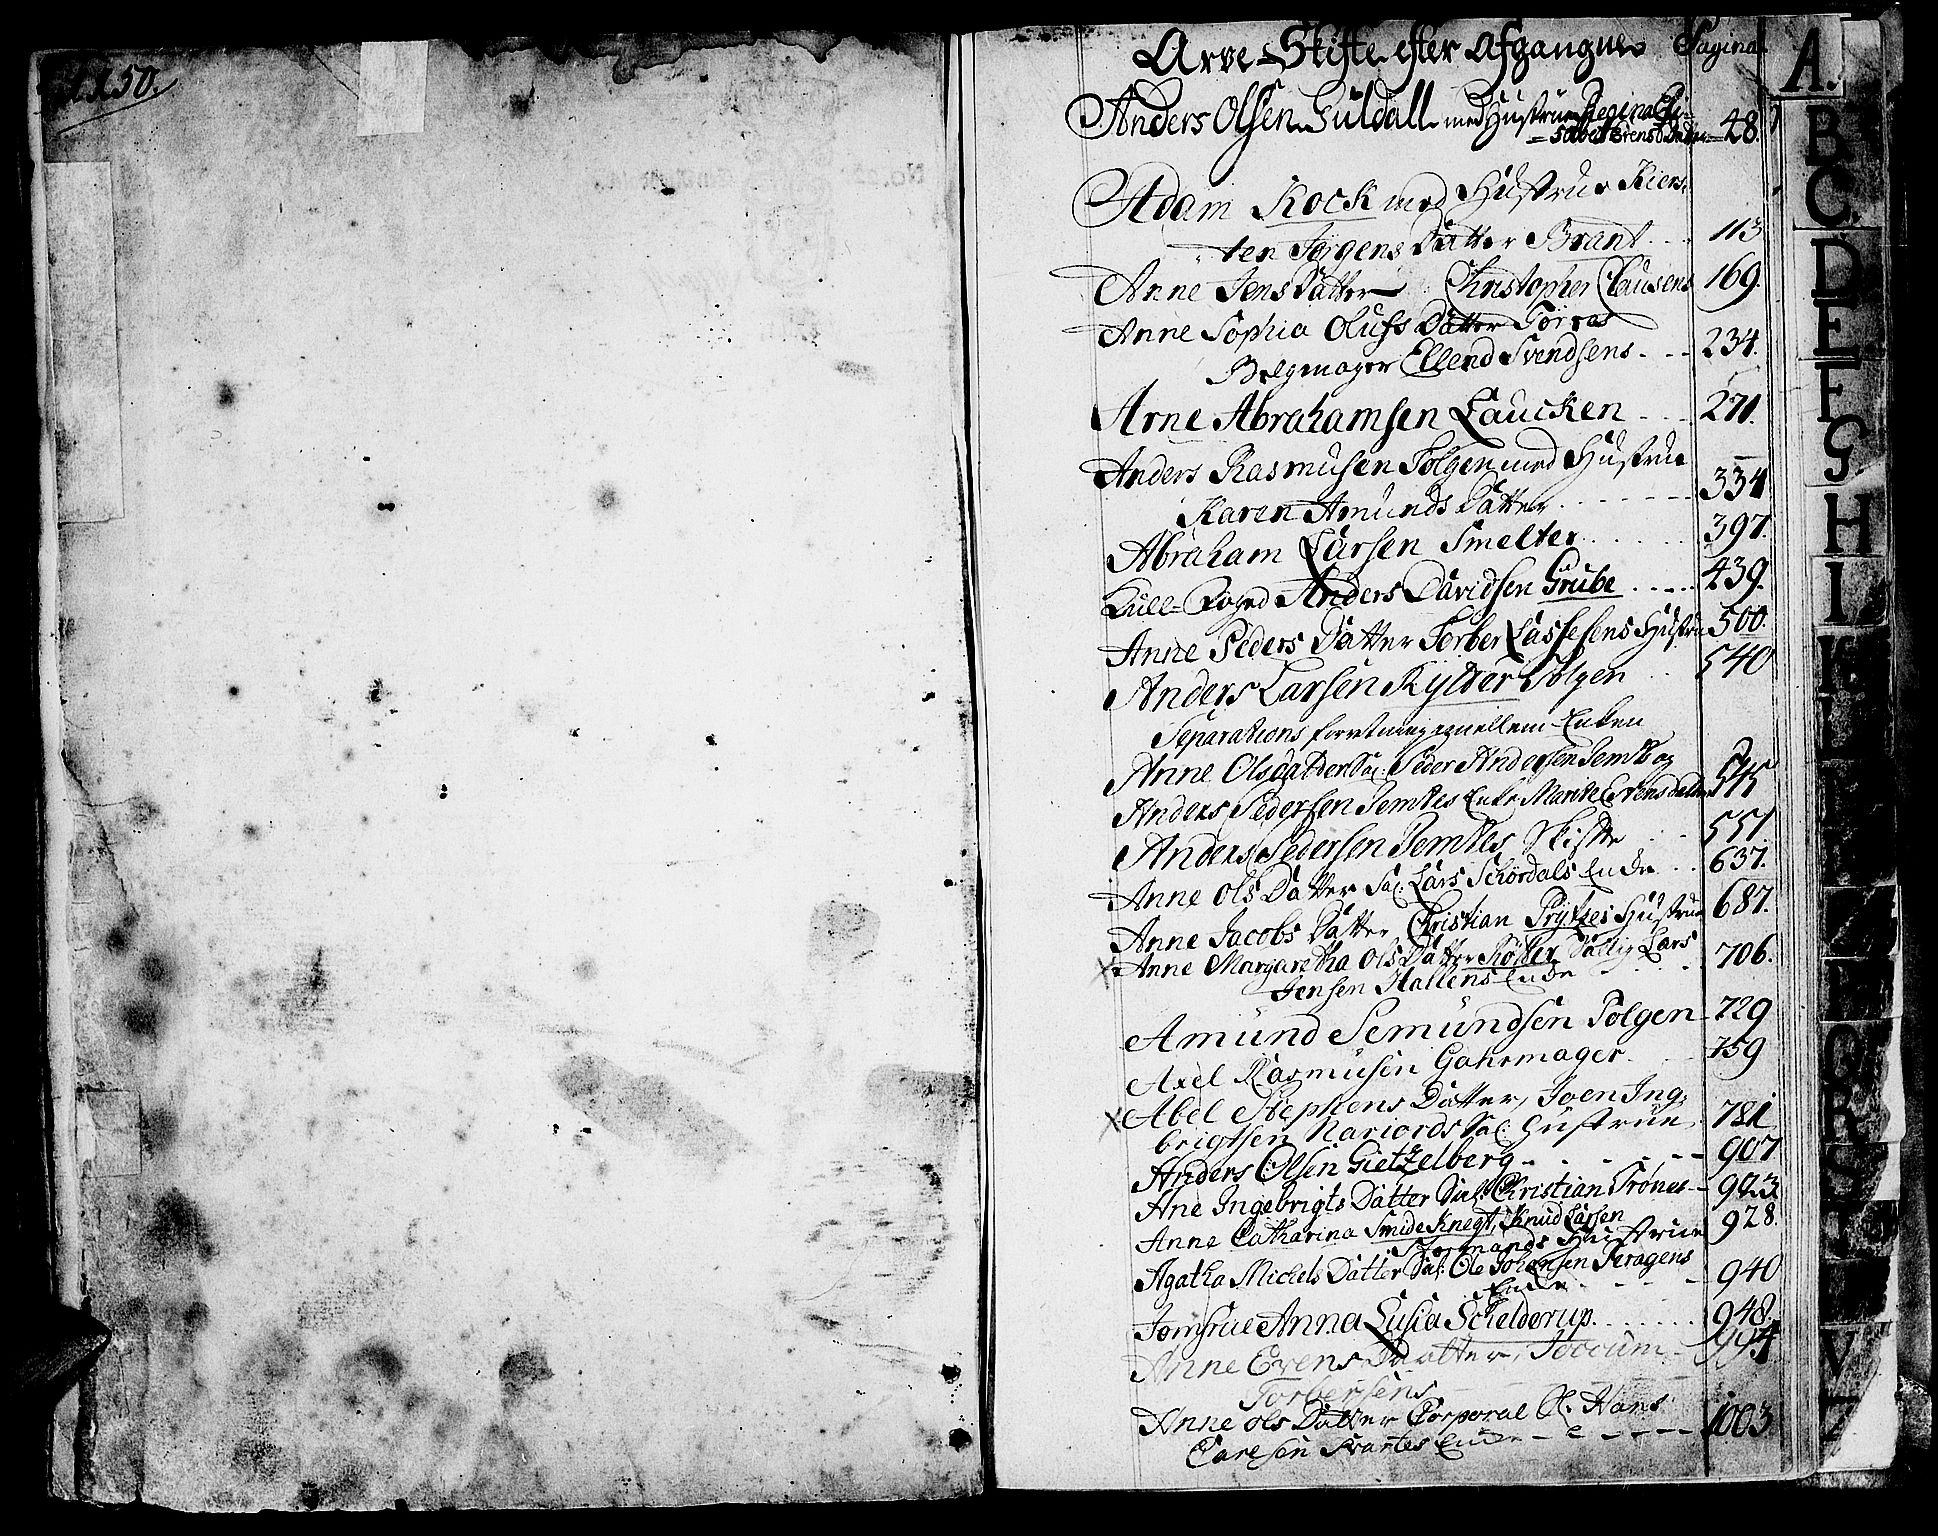 1150.
Arve Skifte efter Afgangne Pagina
A.
Anders Olssen Suldall med Hustrue Regina Eli-
-sabet Erens Datter 48.
Adam Kock med Hustrue Kiers
ten Jørgens Datter Brant 113
Anne Jens Datter Christopher Clausens 169.
Anne Sophia Olufs Datter Torras
Belgmager Ellend Svendsens 234.
Arne Abrahamsen Laucken 271.
Anders Rasmusen Tolgen med Hustrue
Karen Amunds Datter 334
Abraham Larsen Smelter 397.
Kull-Foged Anders Davidsen Grube 439.
Anne Peders Datter Torber Lassesens Hustru 500.
Anders Larsen Rytter Tolgen 540
Separations forretning emellem Enken
Anne Olsdatter Sal. Peder Andersen Jemt og
Anders Pedersen Jemtes Enke Marite Evensdatter 545
Anders Pedersen Jemtes Skifte 551.
Anne Ols Datter Sal. Lars Schördals Enke 637.
Anne Jacobs Datter Christian Prytzes Hustrue 687.
Anne Margaretha Ols Datter Röller Sallig Lars
Jensen Hallens Enke 706.
Amund Semundsen Tolgen 729
Axel Rasmusen Gahrmager 759
Abel Stephens Datter, Joen Ing-
brigtsen Nariords Sal. Hustrue 781
Anders Olsen Gietzelberg 907
Ane Ingebrigts Datter Sal. Christian Trönes 923
Anne Catharina Smideknegt, Knud Larsen
Stormands Hustrue 928.
Agatha Michels Datter Sal. Ole Johansen Aragens
Enke 940
Jomfrue Anna Lusia Schelderup 948.
Anne Evens Daatter, Joccum
Torbersens 994
Anne Ols Datter Corporal Sl. Hans
Carlsen Svartes Enke 1003
B
C.
D
E
F
G
H
I
K
L
R
S
V